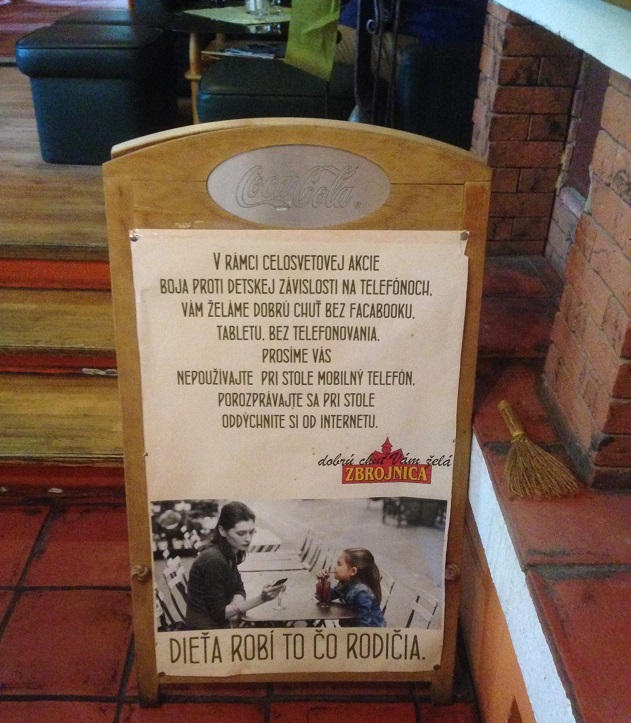 Coca-Cola
V RÁMCI CELOSVETOVEJ AKCIE
BOJA PROTI DETSKEJ ZÁVISLOSTI NA TELEFÓNOCH,
VÁM ŽELÁME DOBRÚ CHUŤ BEZ FACABOOKU,
TABLETU, BEZ TELEFONOVANIA.
PROSÍME VÁS
NEPOUŽÍVAJTE PRI STOLE MOBILNÝ TELEFÓN,
POROZPRÁVAJTE SA PRI STOLE
ODDÝCHNITE SI OD INTERNETU.
dobrú chuť Vám želá
ZBROJNICA
DIEŤA ROBÍ TO ČO RODIČIA.